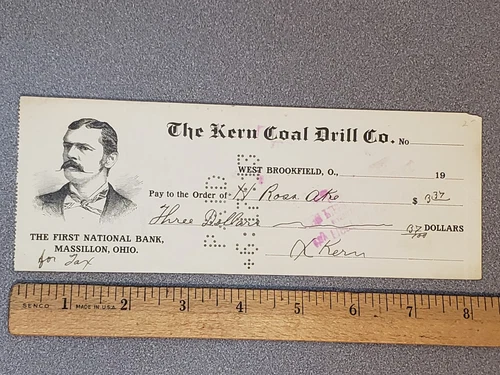 The Kern Coal Drill Co. No
WEST BROOKFIELD, O., 19
Pay to the Order of Ross $ 3 37
Three Dollars 37/100 DOLLARS
THE FIRST NATIONAL BANK,
MASSILLON, OHIO.
Kern
for Tax
SENCO 1 MADE IN U.S.A. 2 3 4 5 6 7 8